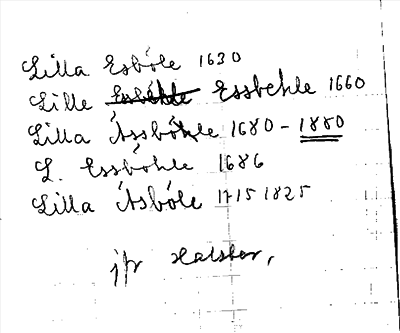 Lilla Esböle 1630
Lille Essbehle 1660
Lilla Åssböhle 1680 - 1880
L. Essböhle 1686
Lilla Åsböle 1715 1825
jfr